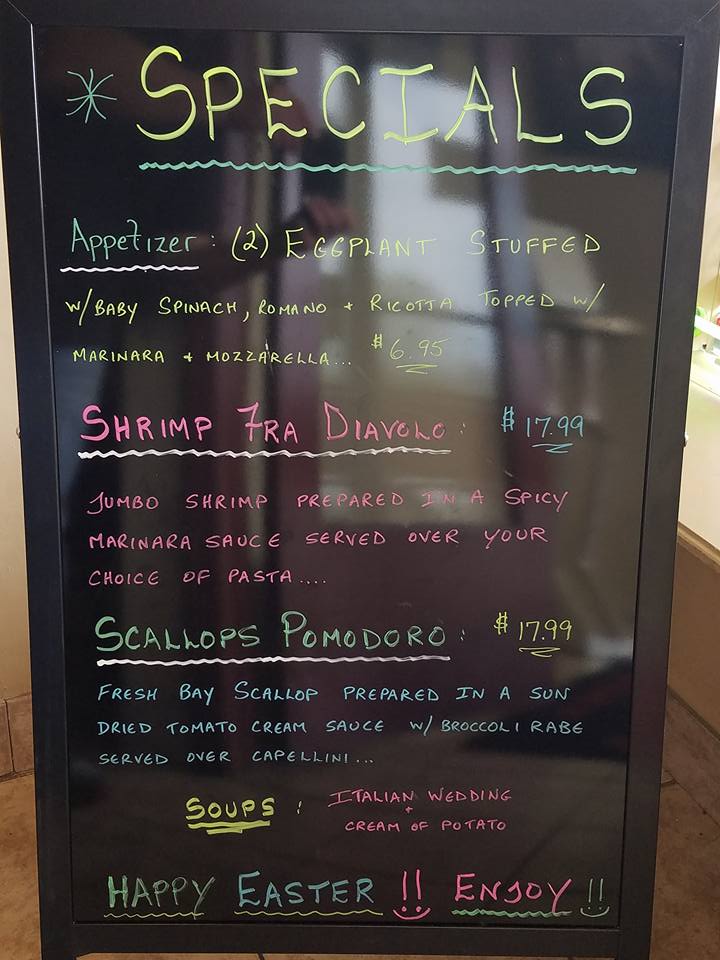 * SPECIALS
Appetizer: (2) EGGPLANT STUFFED
W/BABY SPINACH, ROMANO + RICOTTA TOPPED W/
MARINARA + MOZZARELLA... $6.95
SHRIMP FRA DIAVOLO: $17.99
JUMBO SHRIMP PREPARED IN A SPICY
MARINARA SAUCE SERVED OVER YOUR
CHOICE OF PASTA....
SCALLOPS POMODORO: $17.99
FRESH BAY SCALLOP PREPARED IN A SUN
DRIED TOMATO CREAM SAUCE W/BROCCOLI RABE
SERVED OVER CAPELLINI...
SOUPS: ITALIAN WEDDING
+
CREAM OF POTATO
HAPPY EASTER !! ENJOY !!